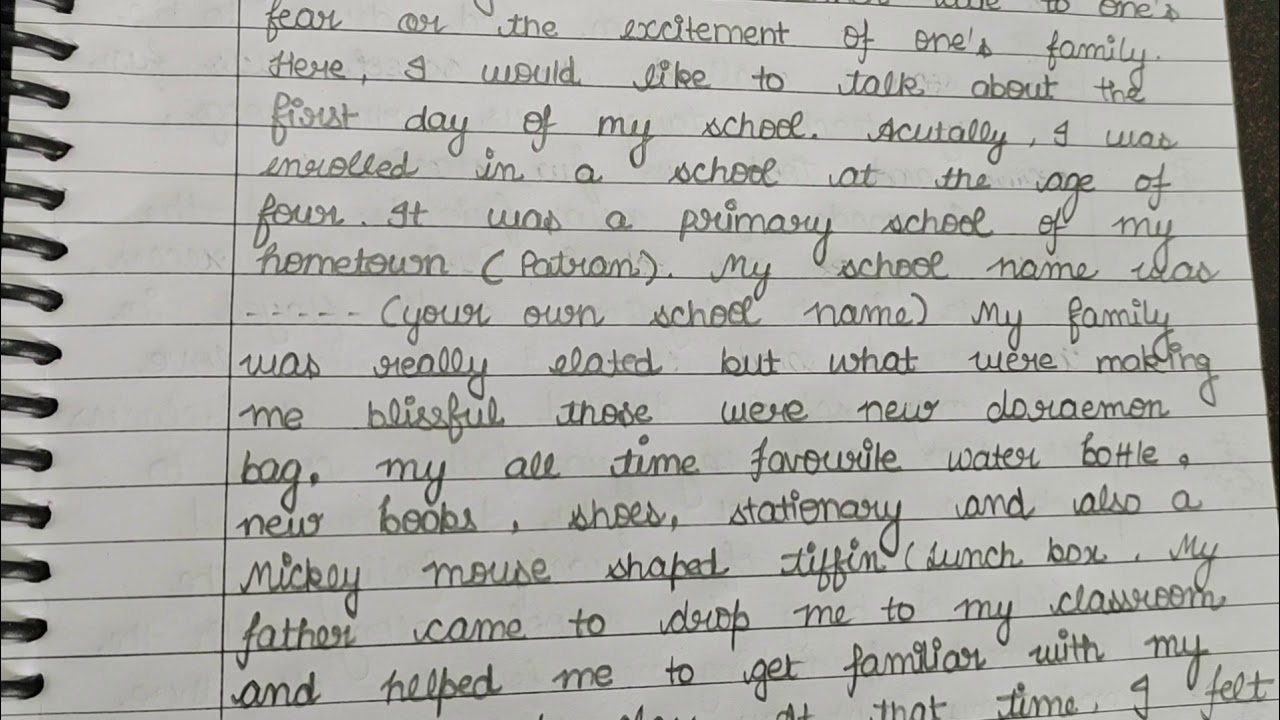 to one's
fear or the excitement of one's family.
Here, I would like to talk about the
first day of my school. Acutally, I was
enrolled in a school at the age of
four. It was a primary school of my
hometown (Patran). My school name was
----- (your own school name) My family
was really elated but what were making
me blissful those were new doraemon
bag. my all time favourite water bottle,
new books, shoes, stationary and also a
Mickey mouse shaped tiffin (lunch box. My
father came to drop me to my classroom
and helped me to get familiar with my
At that time, I felt